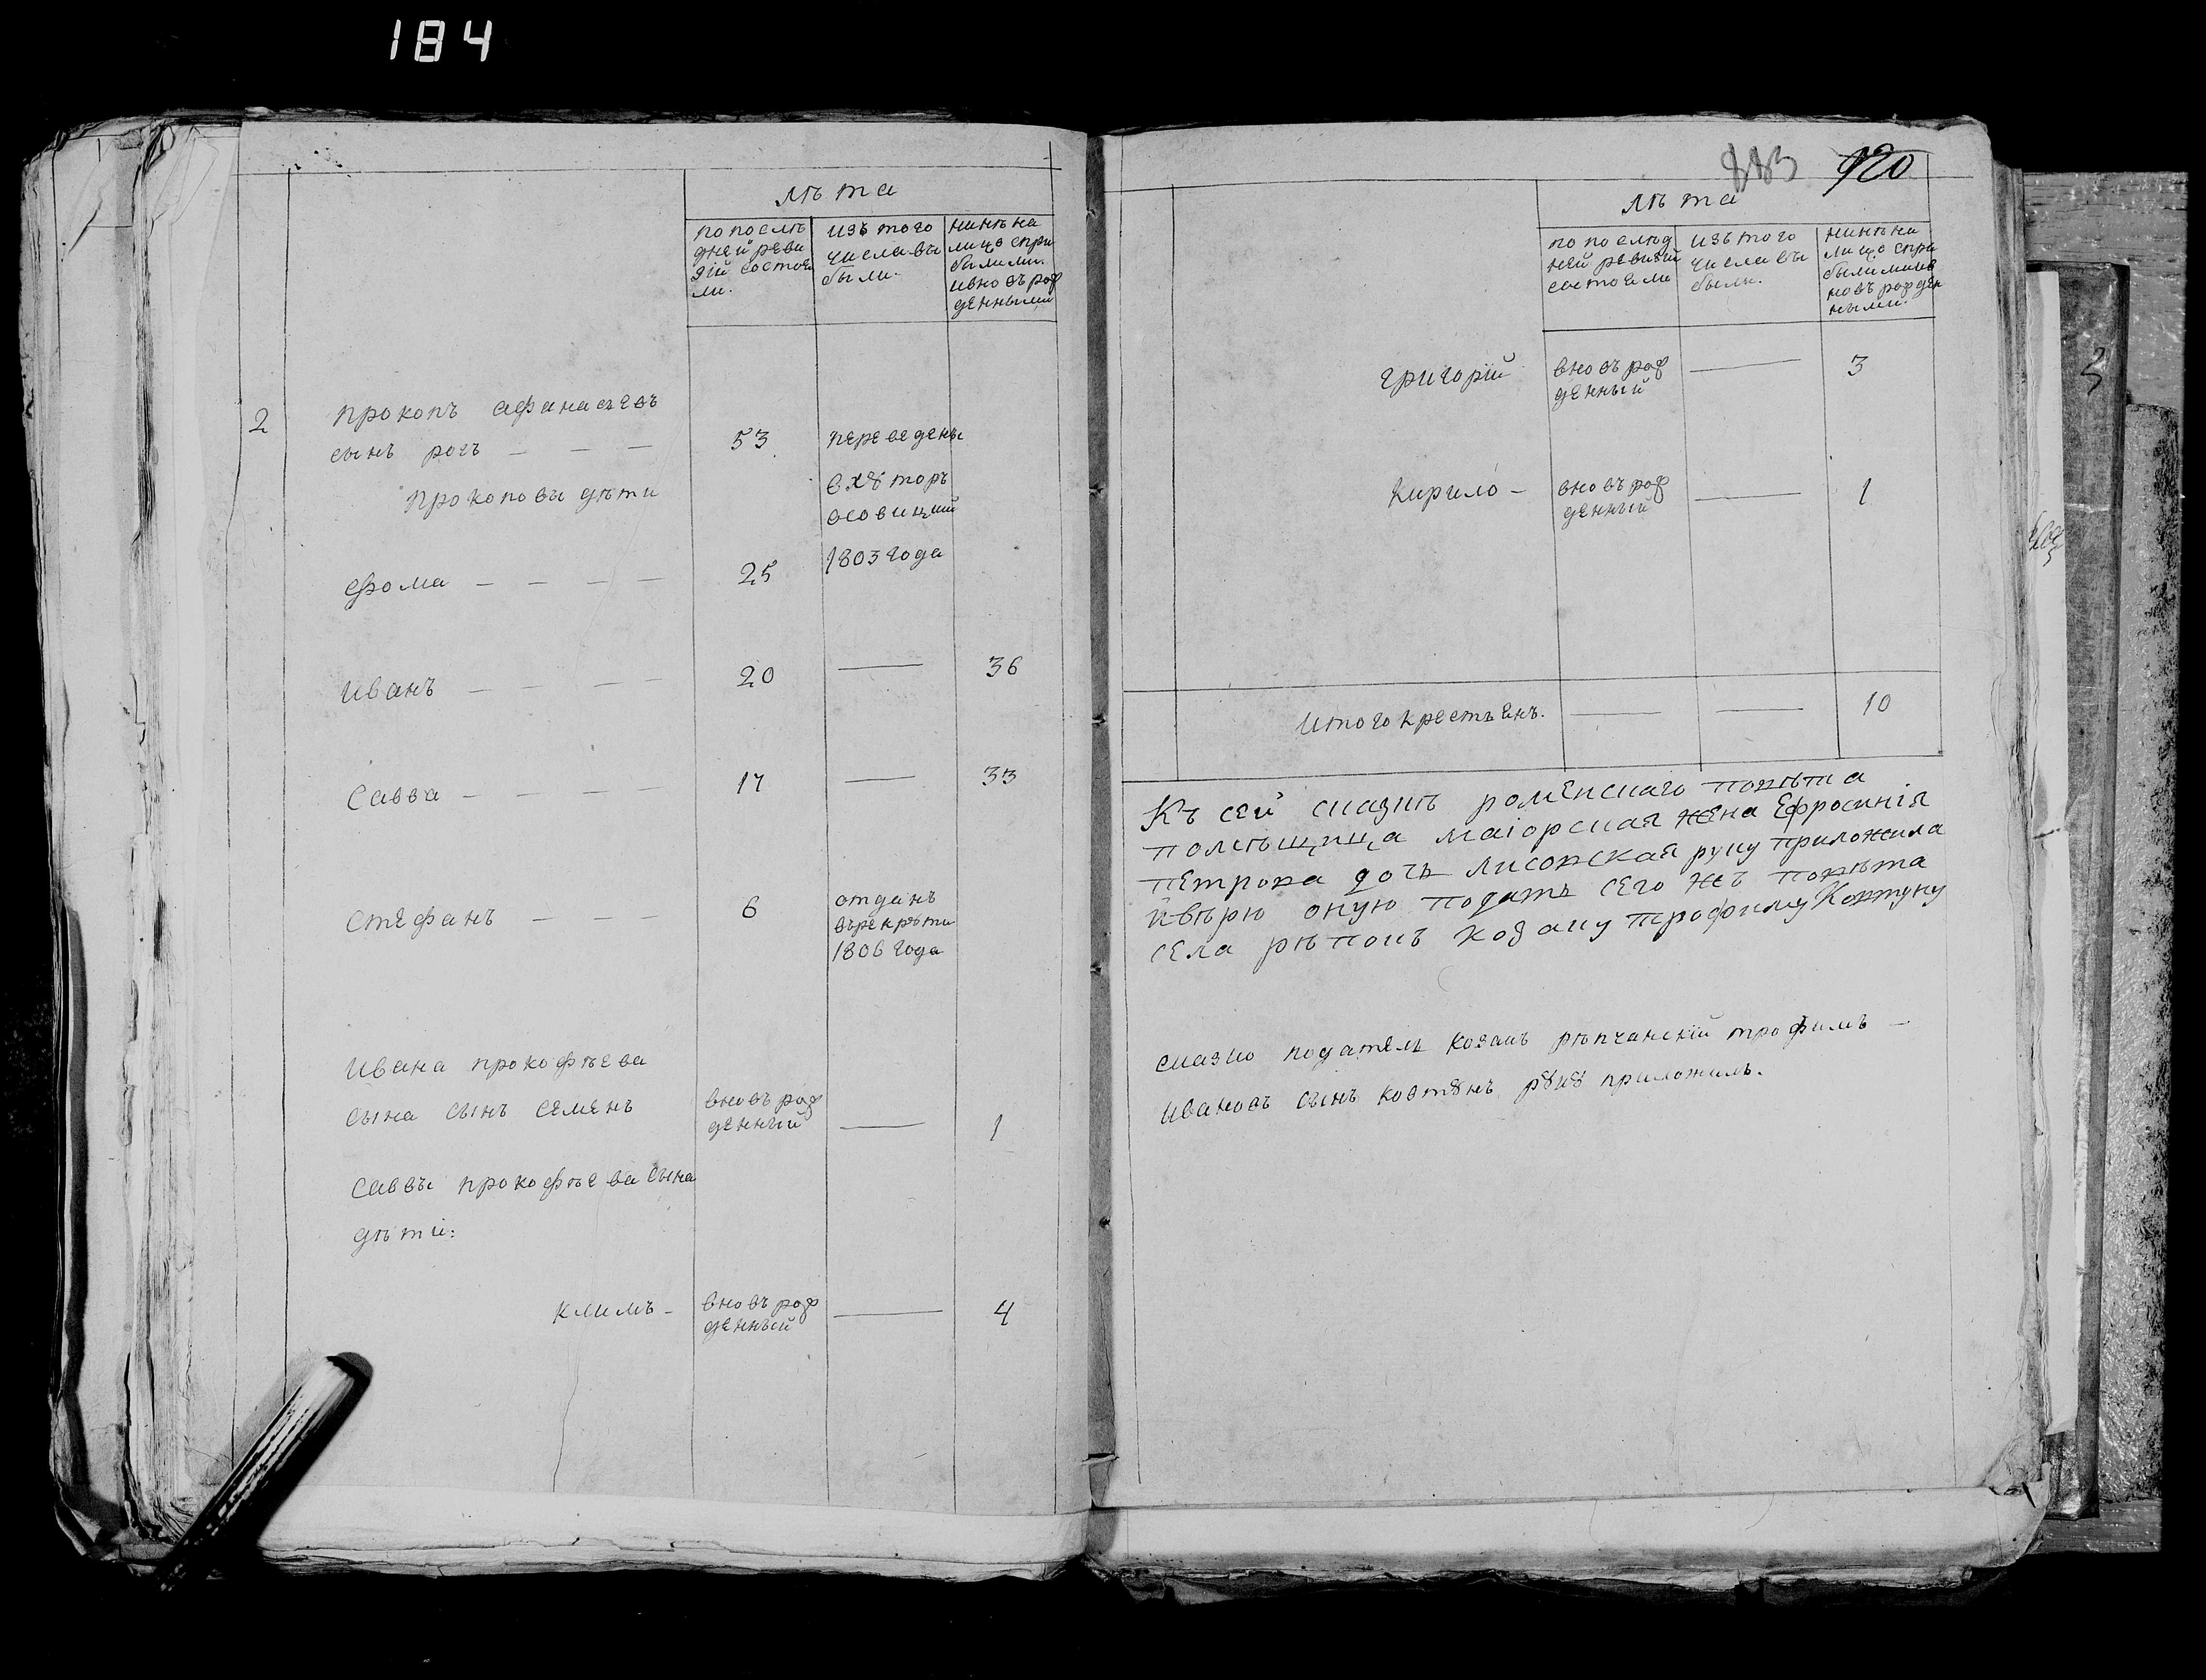 184
лѣта
по послѣ
дней реви
зіи состоя
ли.
изъ того
числа вы
были.
нинѣ на
лицо спри
былими.
ивновъ рож
денными
2
прокопъ афанасьевъ
сынъ рогъ — — —
53
переведены
Прокоповы дѣти
вхꙋторъ
осовицкий
1803 года
фома — — — —
25
иванъ — — — —
20
—
36
Савва — — — —
17
—
33
Стефанъ — — —
6
отданъ
върекрꙋти
1806 года
Ивана прокофѣева
сына сынъ Семенъ
вновъ рож
денный
—
1
Саввы прокофѣева сына
дѣти:
климъ —
вновъ рож
денный
—
4
883 920
лѣта
по послѣд
ней ревизій
состояли
изъ того
числа вы
были.
нинѣ на
лицо спри
былими ив
новъ рожден
ными.
григорій
вновъ рож
денный
—
3
Кирило —
вновъ рож
денный
—
1
Итого крестьянъ.
—
—
10
Къ сей сказкѣ роменскаго повѣта
помѣщица маіорская жена Ефросинія
петрова дочь лисовская руку приложила
йвѣрю оную подать сего жъ повѣта
села рѣпокъ козаку трофиму Ковтуну
сказко податель козакъ рѣпчанскій трофимъ —
ивановъ сынъ ковтꙋнъ рꙋкꙋ приложилъ.